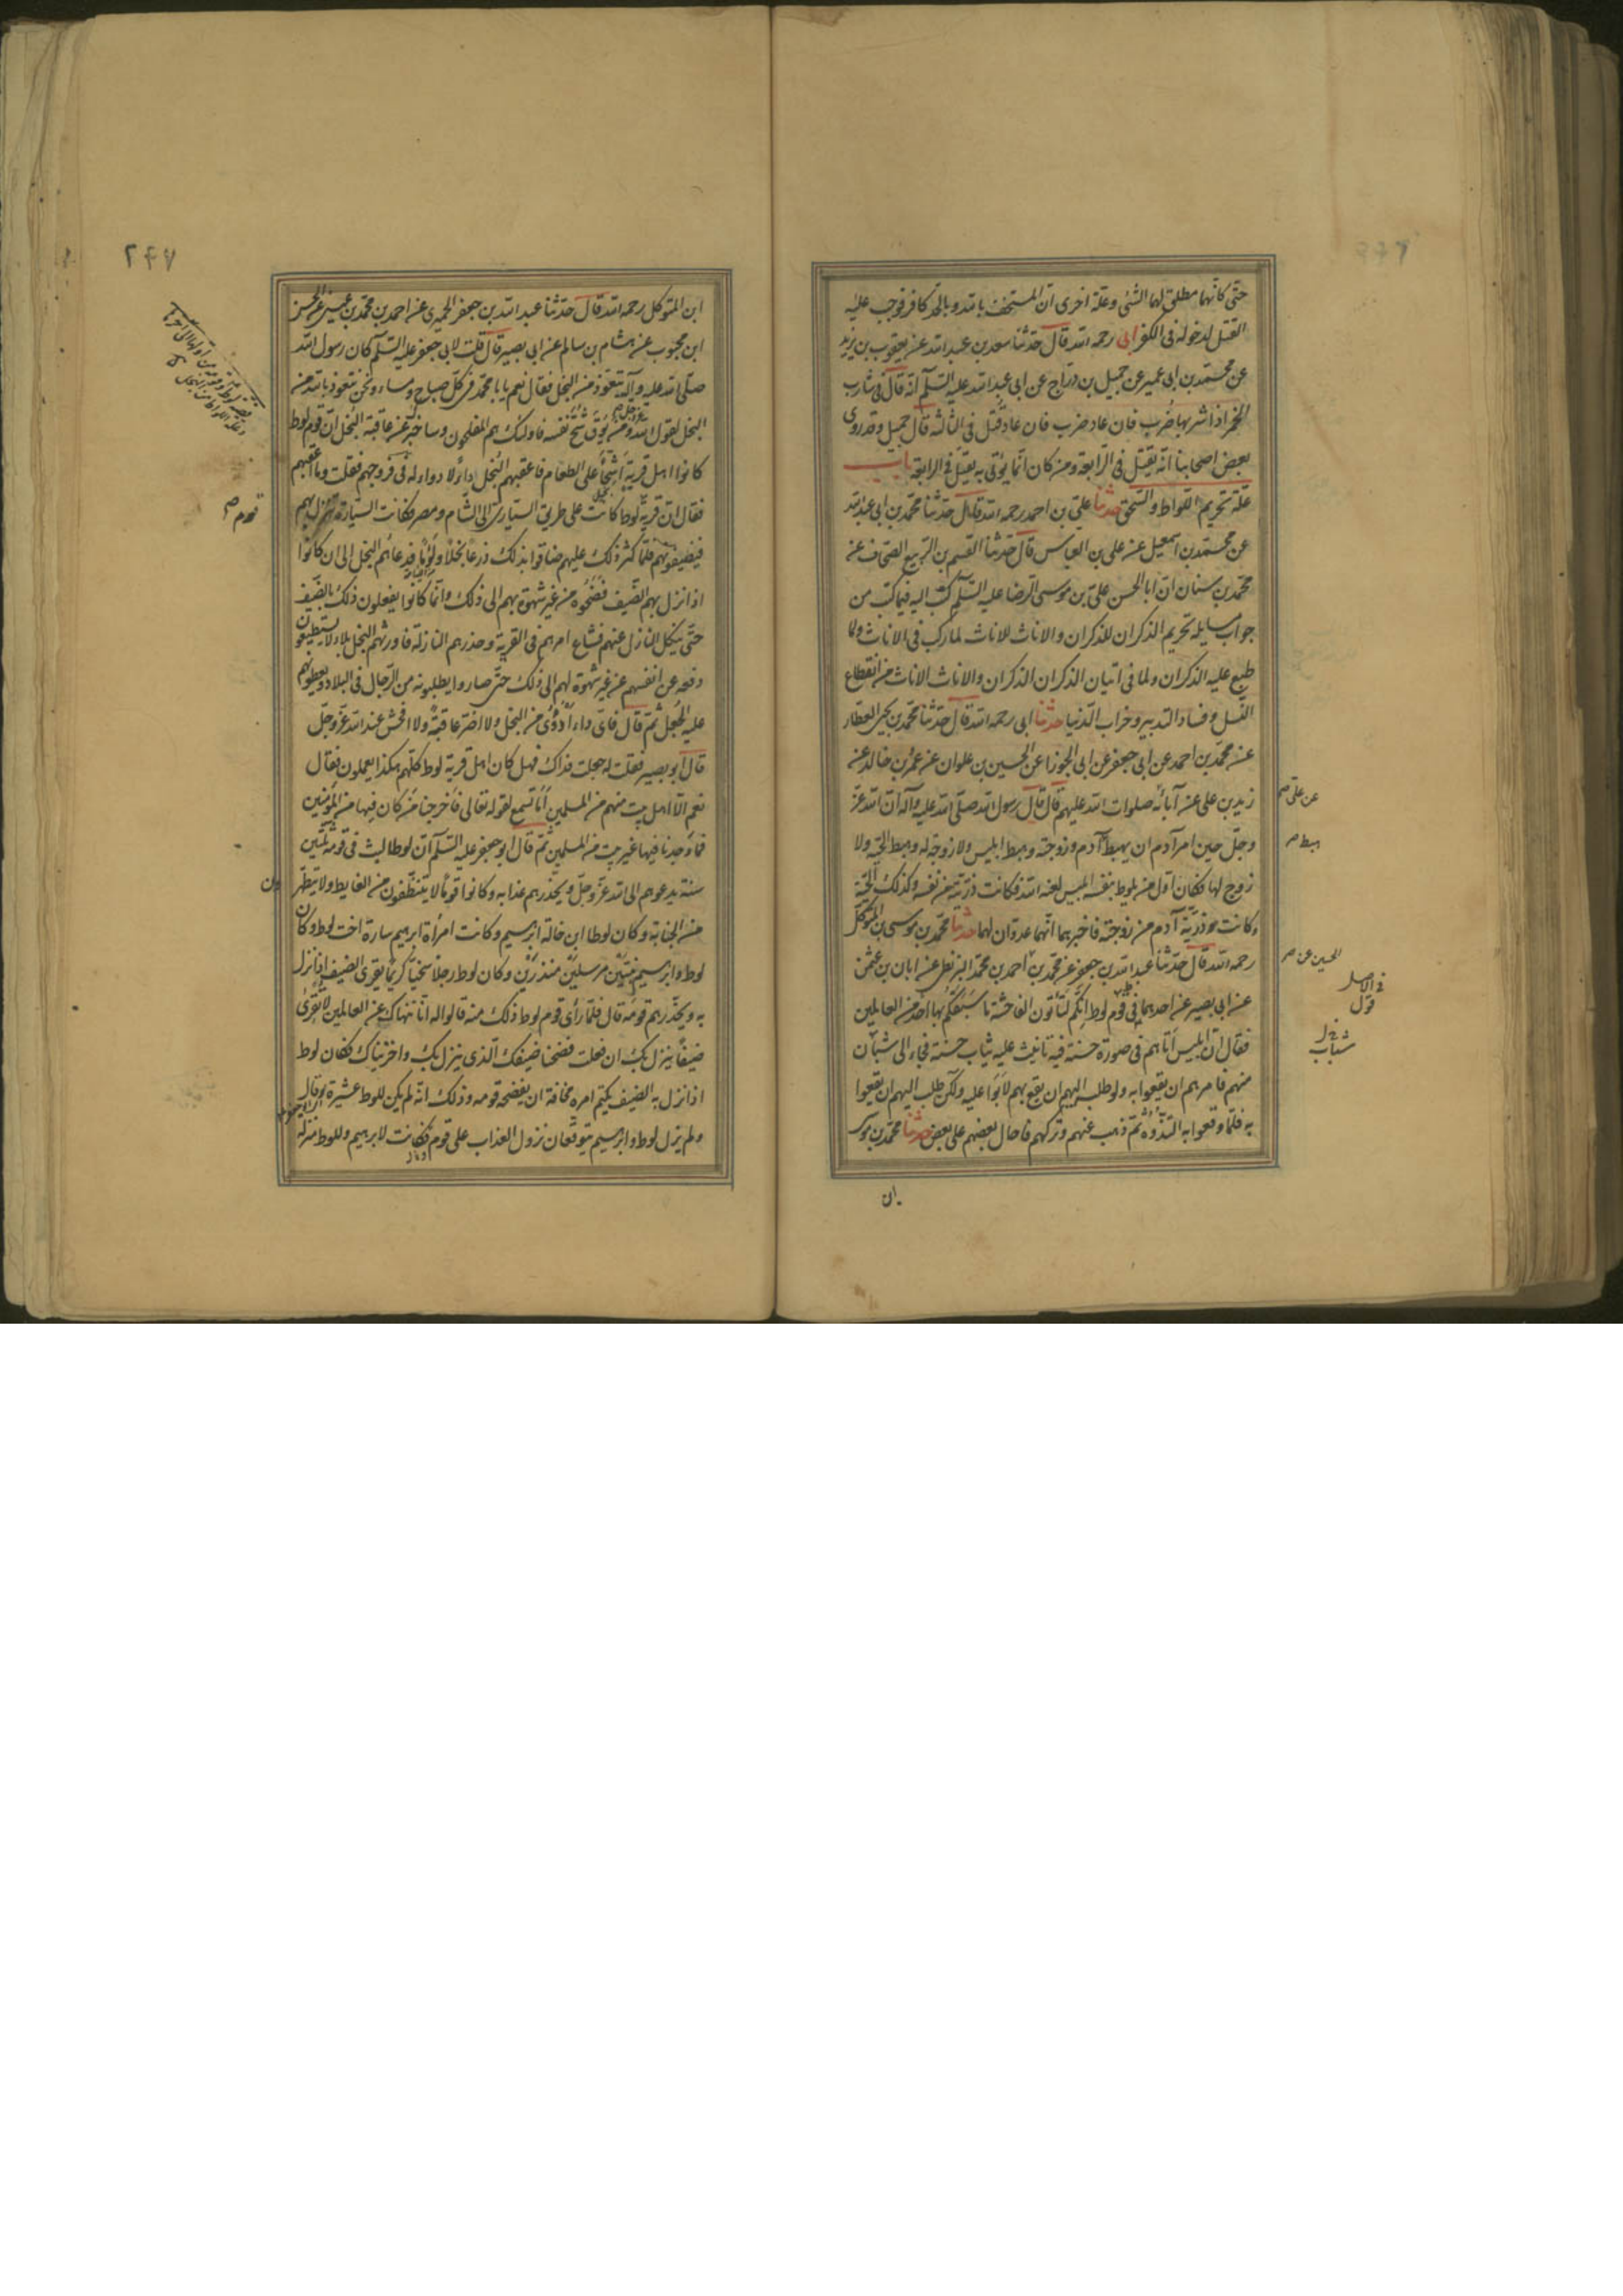 حتى كانهما مطلق لهما الشئ وعلة اخرى ان المستخف بالله وبالحد كافر فوجب عليه
القتل لدخوله فى الكفر ابى رحمه الله قال حدثنا سعد بن عبد الله عن يعقوب بن يزيد
عن محمد بن ابى عمير عن جميل بن دراج عن ابى عبد الله عليه السلم انه قال فى شارب
الخمر اذا شربها ضرب فان عاد ضرب فان عاد قتل فى الثالثة قال جميل وقد روى
بعض اصحابنا انه يقتل فى الرابعة ومن كان انما يؤتى به يقتل فى الرابعة باب
علة تحريم اللواط والسحق حدثنا على بن احمد رحمه الله قال حدثنا محمد بن ابى عبد الله
عن محمد بن اسمعيل عن على بن العباس قال حدثنا القسم بن الربيع الصحاف عن
محمد بن سنان ان ابا الحسن على بن موسى الرضا عليه السلم كتب اليه فيما كتب من
جواب مسايله تحريم الذكران للذكران والاناث للاناث لما ركب فى الاناث وما
طبع عليه الذكران ولما فى اتيان الذكران الذكران والاناث الاناث من انقطاع
النسل وفساد التدبير وخراب الدنيا حدثنا ابى رحمه الله قال حدثنا محمد بن يحيى العطار
عن محمد بن احمد عن ابى جعفر عن ابى الجوزا عن الحسين بن علوان عن عمرو بن خالد عن
زيد بن على عن آبائه صلوات الله عليهم قال قال رسول الله صلى الله عليه وآله ان الله عز
وجل حين امر آدم ان يهبط آدم وزوجته وهبط ابليس ولا زوجة له وهبط الحية ولا
زوج لها فكان اول من يلوط بنفسه ابليس لعنه الله فكانت ذريته من نفسه وكذلك الحية
وكانت ذرية آدم من زوجته فاخبرهما انهما عدوان لهما حدثنا محمد بن موسى بن المتوكل
رحمه الله قال حدثنا عبد الله بن جعفر عن محمد بن احمد بن محمد البزنطى عن ابان بن عثمن
عن ابى بصير عن احدهما فى قوم لوط انكم لتاتون الفاحشة ما سبقكم بها احد من العالمين
فقال ان ابليس اتاهم فى صورة حسنة فيه تانيث عليه ثياب حسنة فجاء الى شبان
منهم فامرهم ان يقعوا به ولو طلب اليهم ان يقع بهم لابوا عليه ولكن طلب اليهم ان يقعوا
به فلما وقعوا به التذوه ثم ذهب عنهم وتركهم فاحال بعضهم على بعض حدثنا محمد بن موسى
عن على صح
هبط صح
الحسين عن صح
فى الاصل
قول
شباب
ابن
٢٤٧
ابن المتوكل رحمه الله قال حدثنا عبد الله بن جعفر الحميرى عن احمد بن محمد بن عيسى عن الحسن
ابن محبوب عن هشام بن سالم عن ابى بصير قال قلت لابى جعفر عليه السلم كان رسول الله
صلى الله عليه وآله يتعوذ من البخل فقال نعم يا با محمد فى كل صباح ومساء ونحن نتعوذ بالله من
البخل لقول الله عز وجل ومن يوق شح نفسه فاولئك هم المفلحون وساخبرك عن عاقبة البخل ان قوم لوط
كانوا اهل قرية اشحاء على الطعام فاعقبهم البخل داء لا دواء له فى فروجهم فقلت وما اعقبهم
فقال ان قرية لوط كانت على طريق السيارة الى الشام ومصر فكانت السيارة تنزل بهم
فيضيفونهم فلما كثر ذلك عليهم ضاقوا بذلك ذرعا بخلا ولؤما فدعاهم البخل الى ان كانوا
اذا نزل بهم الضيف فضحوه من غير شهوة بهم الى ذلك وانما كانوا يفعلون ذلك بالضيف
حتى ينكل النازل عنهم فشاع امرهم فى القرية وحذرهم النازلة فاورثهم البخل بلاء لا يستطيعون
دفعه عن انفسهم عن غير شهوة لهم الى ذلك حتى صاروا يطلبونه من الرجال فى البلاد ويعطونهم
عليه الجعل ثم قال فاى داء ادوى من البخل ولا اضر عاقبة ولا افحش عند الله عز وجل
قال ابو بصير فقلت له جعلت فداك فهل كان اهل قرية لوط كلهم هكذا يعملون فقال
نعم الا اهل بيت منهم من المسلمين اما تسمع لقوله تعالى فاخرجنا من كان فيها من المؤمنين
فما وجدنا فيها غير بيت من المسلمين ثم قال ابو جعفر عليه السلم ان لوطا لبث فى قومه ثلثين
سنة يدعوهم الى الله عز وجل ويحذرهم عذابه وكانوا قوما لا يتنظفون من الغايط ولا يتطهرون
من الجنابة وكان لوطا ابن خالة ابرهيم وكانت امرأة ابرهيم سارة اخت لوط وكان
لوط وابرهيم نبيين مرسلين منذرين وكان لوط رجلا سخيا كريما يقرى الضيف اذا نزل
به ويحذرهم قومه قال فلما رأى قوم لوط ذلك منه قالوا له انا ننهاك عن العالمين لا تقرى
ضيفا ينزل بك ان فعلت فضحنا ضيفك الذى ينزل بك واخزيناك فكان لوط
اذا نزل به الضيف يكتم امره مخافة ان يفضحه قومه وذلك انه لم يكن للوط عشيرة قال
ولم يزل لوط وابرهيم يتوقعان نزول العذاب على قوم فكانت لابرهيم وللوط منزلة